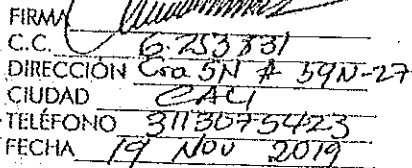 FIRMA
C.C. 6.253831
DIRECCIÓN Cra 5N # 59N-27
CIUDAD CALI
TELÉFONO 3113075423
FECHA 19 NOV 2019